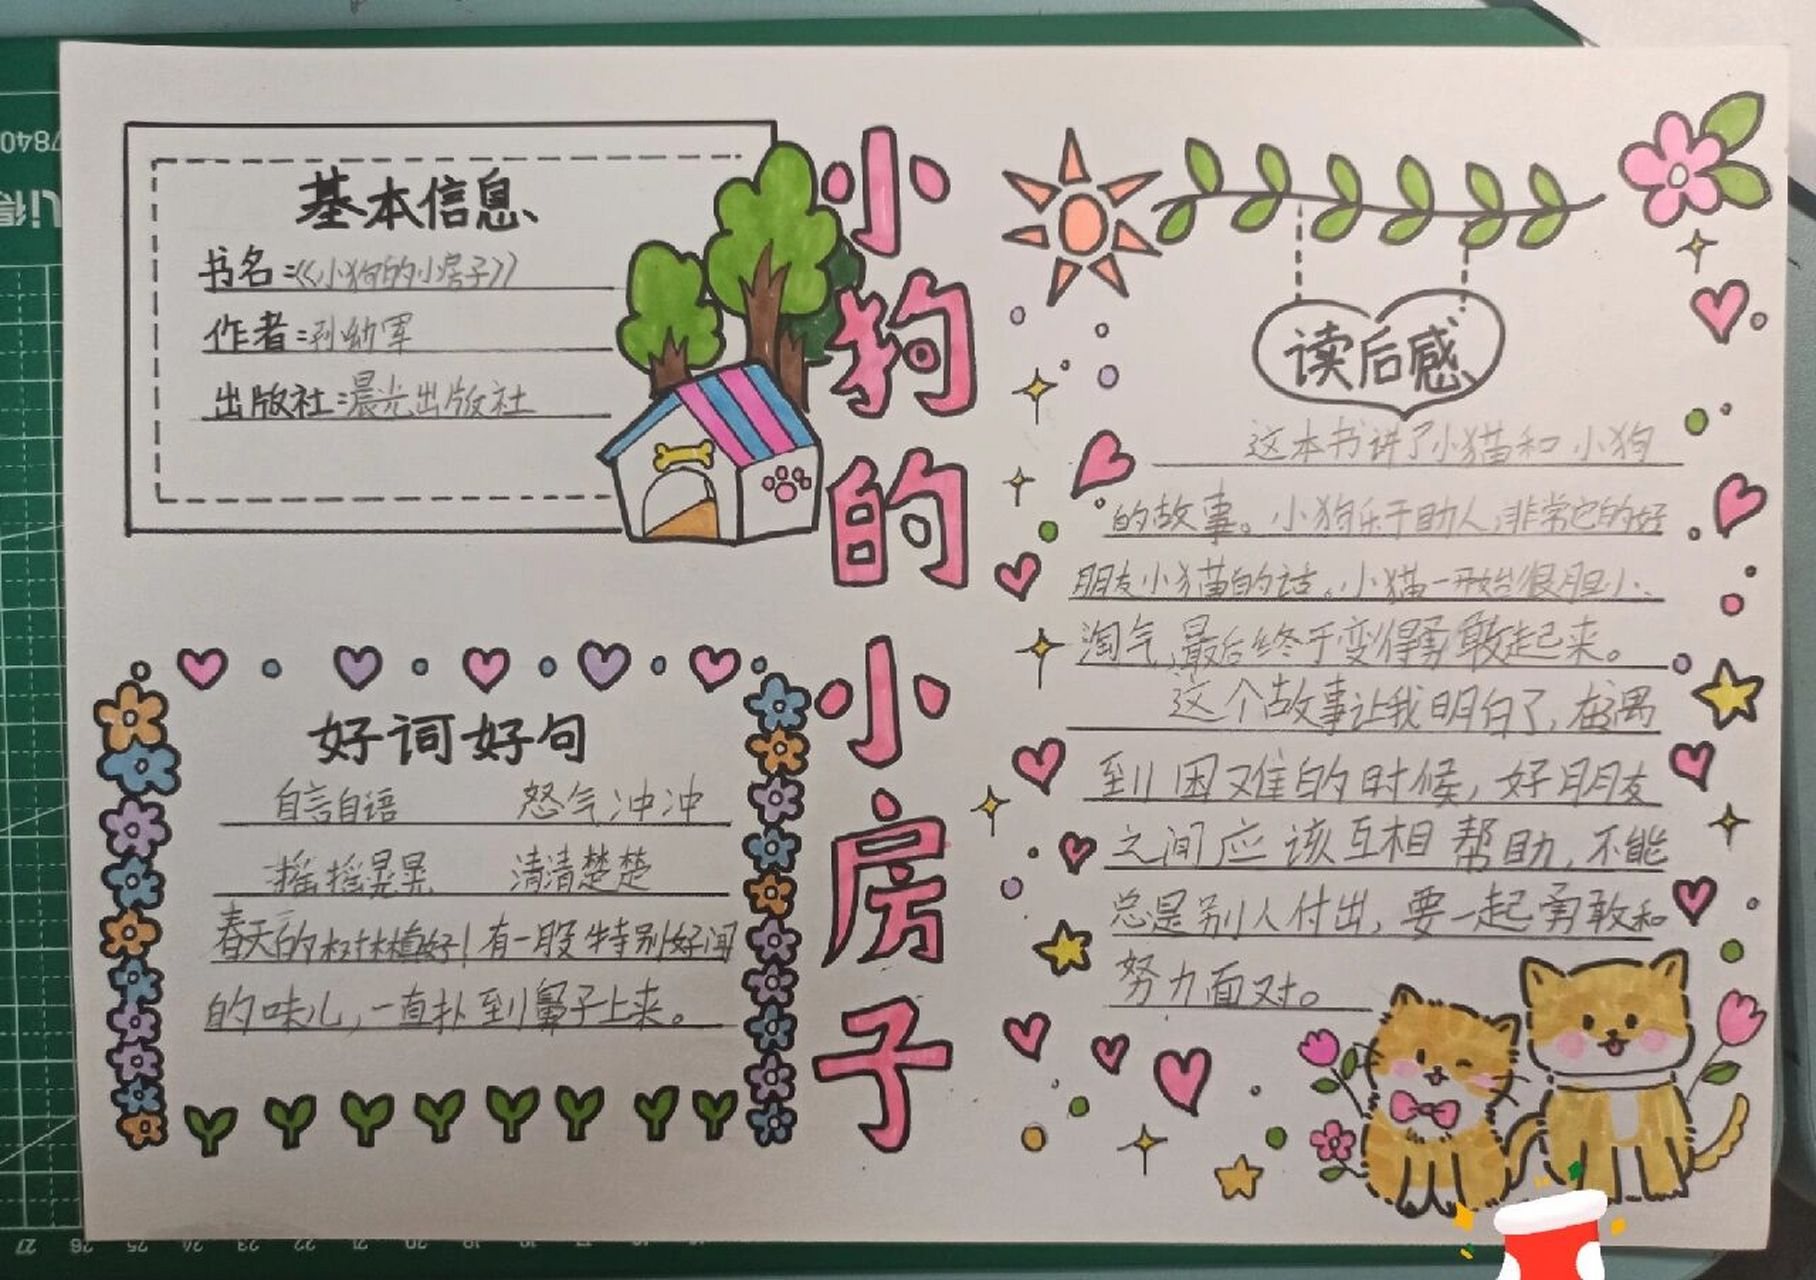 基本信息
书名:《小狗的小房子》
作者:孙幼军
出版社:晨光出版社
小狗的小房子
好词好句
自言自语 怒气冲冲
摇摇晃晃 清清楚楚
春天的树林真好!有一股特别好闻
的味儿,一直扑到鼻子上来。
读后感
这本书讲了小猫和小狗
的故事。小狗乐于助人,非常它的好
朋友小猫的话。小猫一开始很胆小、
淘气,最后终于变得勇敢起来。
这个故事让我明白了,在遇
到困难的时候,好朋友
之间应该互相帮助,不能
总是别人付出,要一起勇敢和
努力面对。
27 26 25 24 23 22 21 20
7840